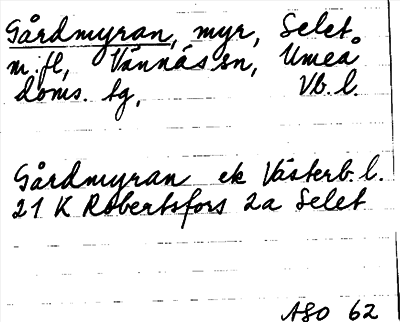 Gårdmyran, myr, Selet
m.fl, Vännäs sn, Umeå
doms. tg, Vb. l.
Gårdmyran ek Västerb. l.
21 K Robertsfors 2a Selet
ASO 62